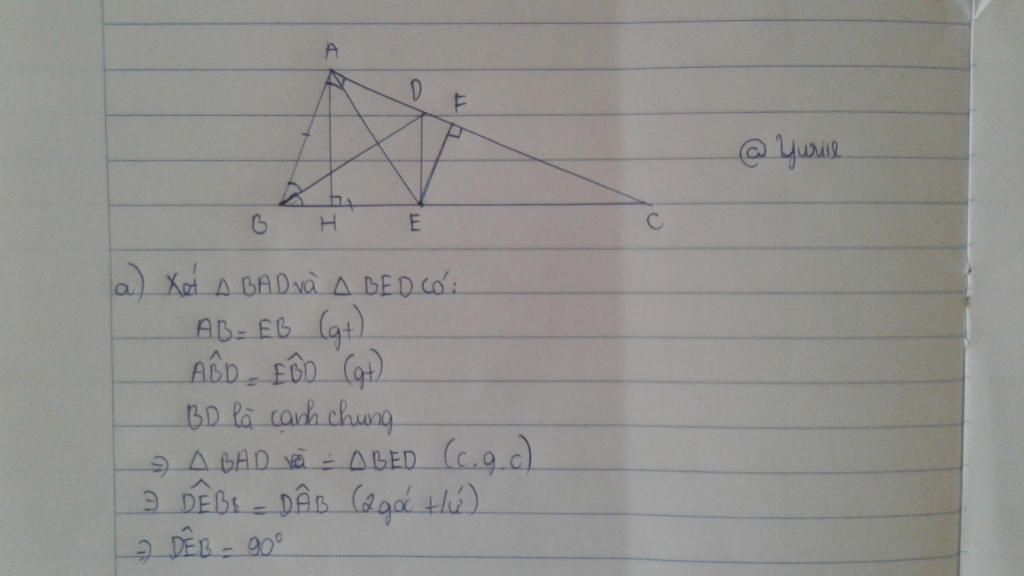 A
D
F
@ Yurie
B H E C
a) Xét △ BAD và △ BED có:
AB = EB (gt)
AB̂D = EB̂D (gt)
BD là cạnh chung
=> △ BAD = △BED (c.g.c)
=> DÊB = DÂB (2góc t/ứ)
=> DÊB = 90°